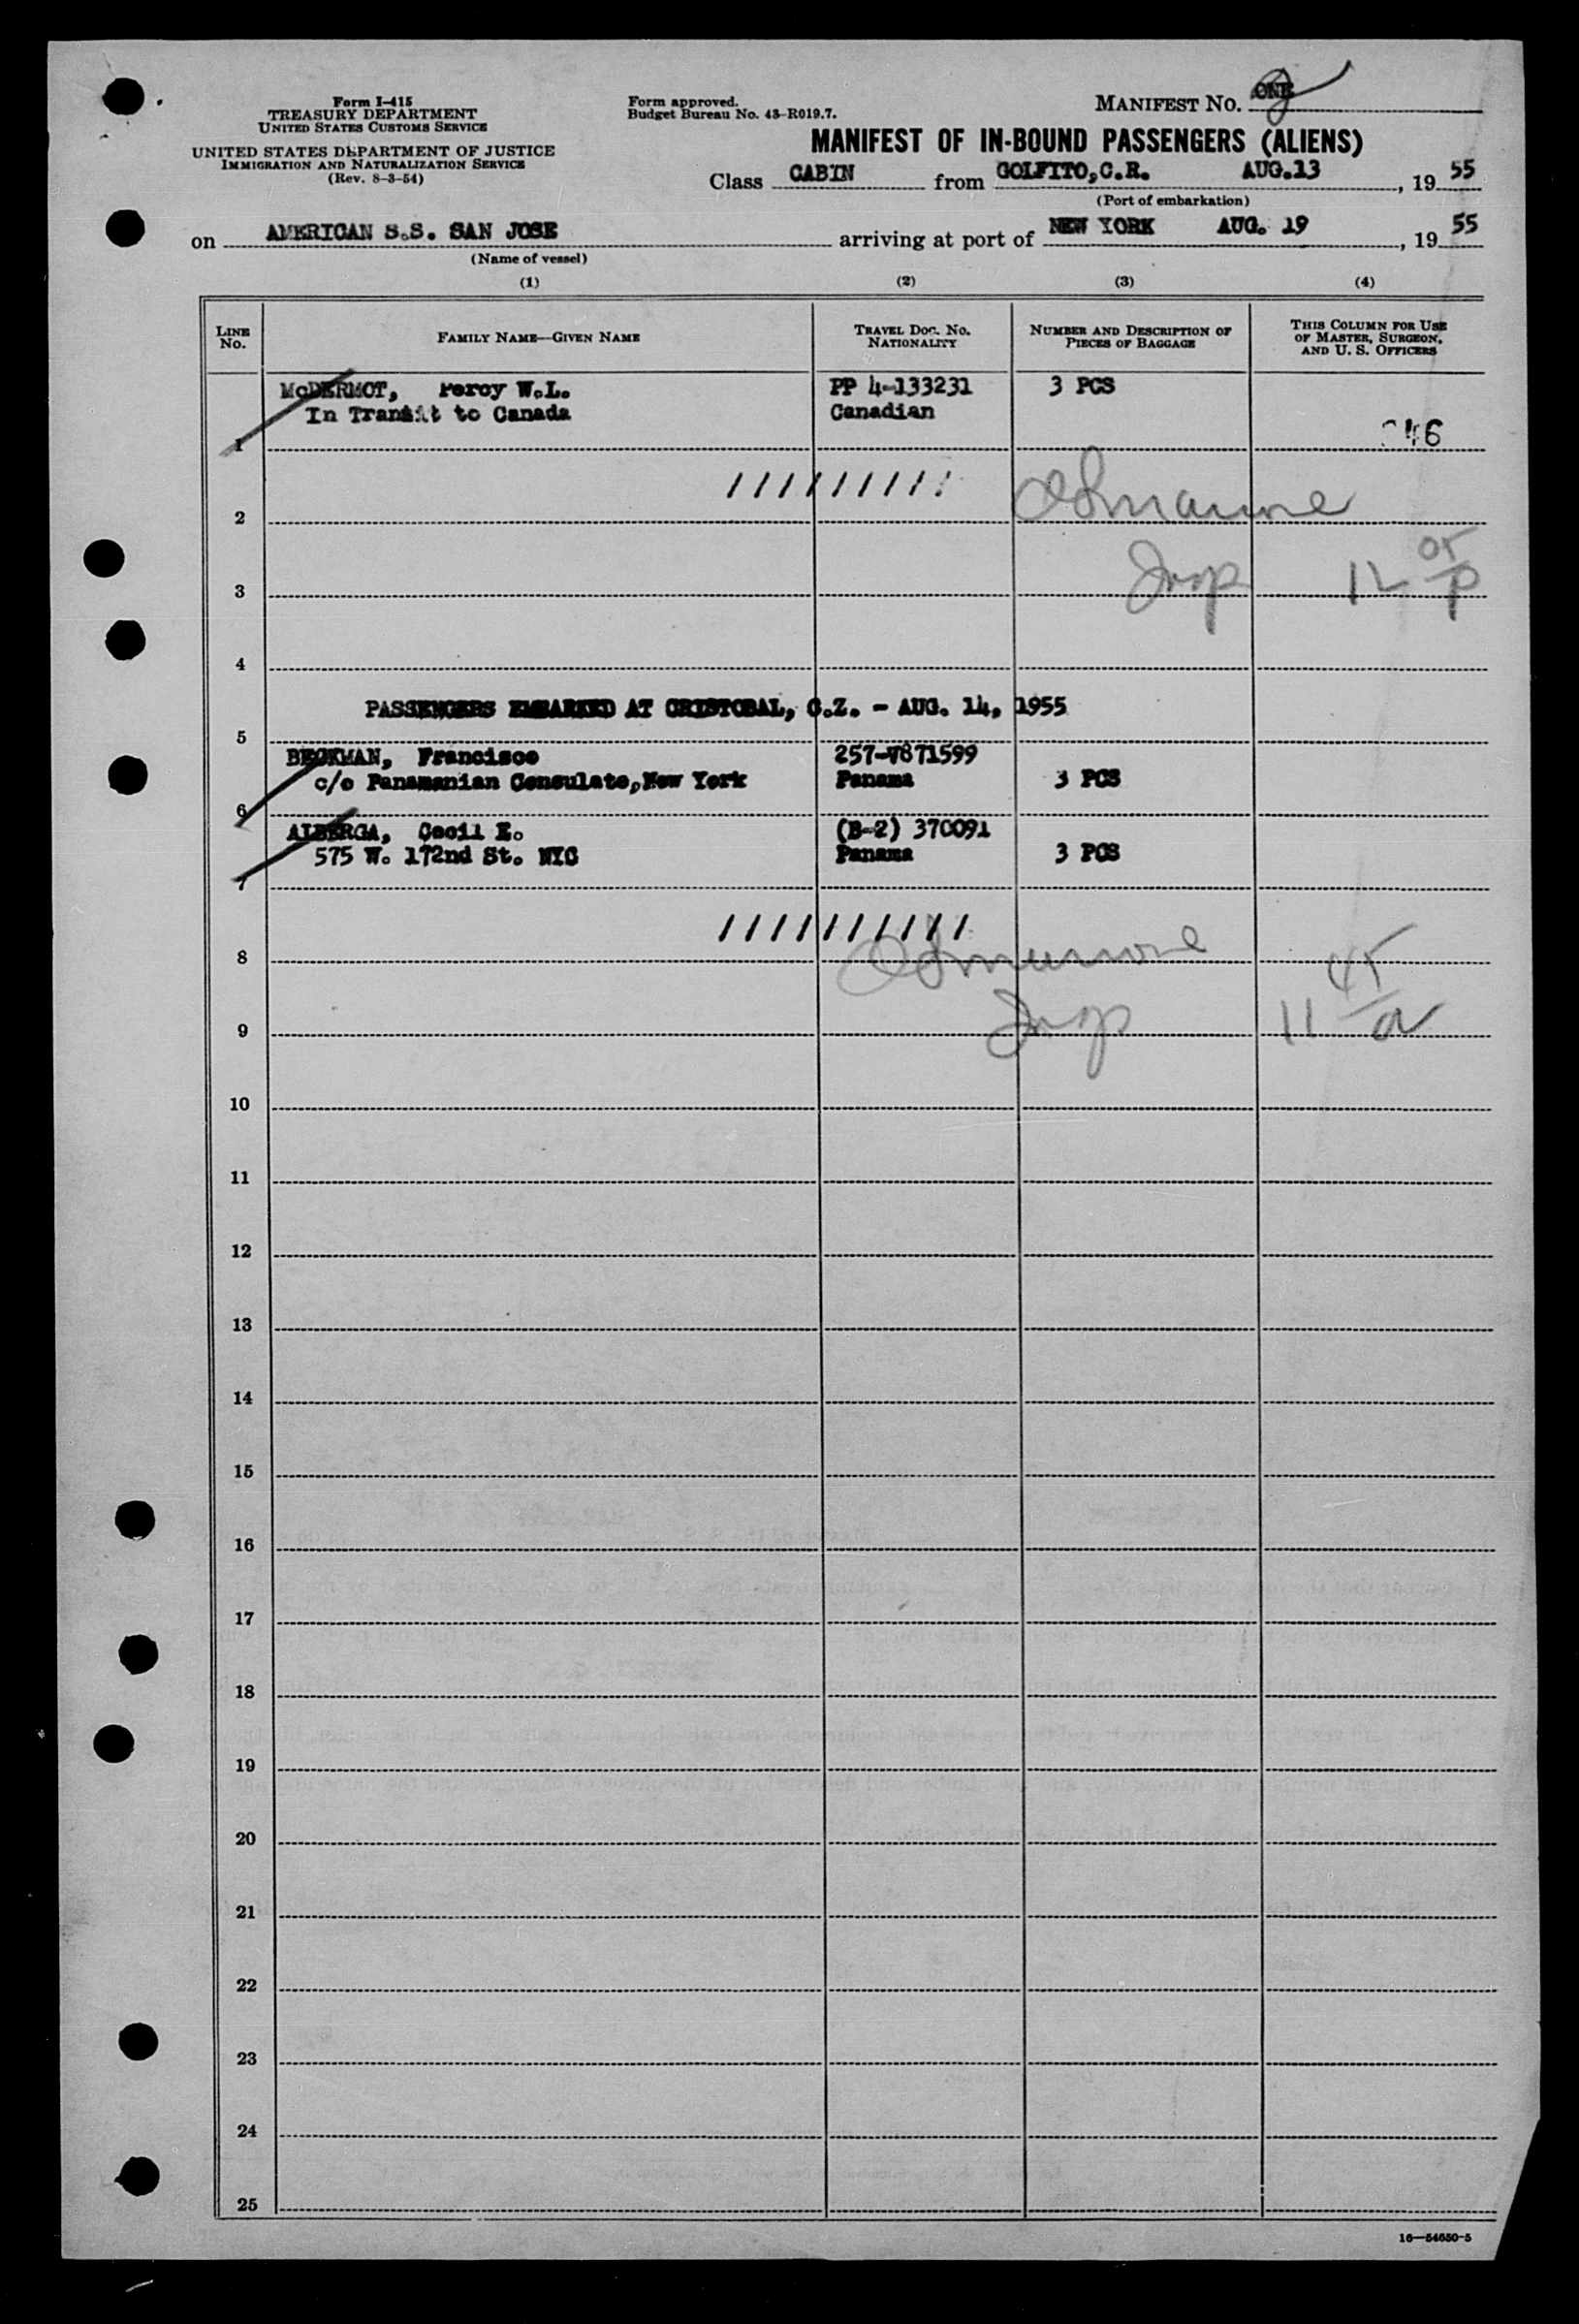 Form I-415
TREASURY DEPARTMENT
UNITED STATES CUSTOMS SERVICE
UNITED STATES DEPARTMENT OF JUSTICE
IMMIGRATION AND NATURALIZATION SERVICE
(Rev. 8-3-54)
Form approved.
Budget Bureau No. 43-R019.7.
MANIFEST NO. ONE
MANIFEST OF IN-BOUND PASSENGERS (ALIENS)
Class CABIN from GOLFITO, C.R. AUG.13, 19 55
(Port of embarkation)
on AMERICAN S.S. SAN JOSE arriving at port of NEW YORK AUG. 19, 19 55
(Name of vessel)
(1) (2) (3) (4)
LINE NO. FAMILY NAME—GIVEN NAME TRAVEL DOC. NO. NATIONALITY NUMBER AND DESCRIPTION OF PIECES OF BAGGAGE THIS COLUMN FOR USE OF MASTER, SURGEON, AND U. S. OFFICERS
McDERMOT, Percy W.L. PP 4-133231 3 PCS
In Transit to Canada Canadian
1 46
///////// 
2
3 Insp 12 05/P
4
PASSENGERS EMBARKED AT CRISTOBAL, C.Z. - AUG. 14, 1955
5
BECKMAN, Francisco 257-7871599
c/o Panamanian Consulate, New York Panama 3 PCS
6
ALBERGA, Cecil E. (B-2) 370091
575 W. 172nd St. NYC Panama 3 PCS
7
//////////
8
9 Insp 11 45/a
10
11
12
13
14
15
16
17
18
19
20
21
22
23
24
25
16—54650-5